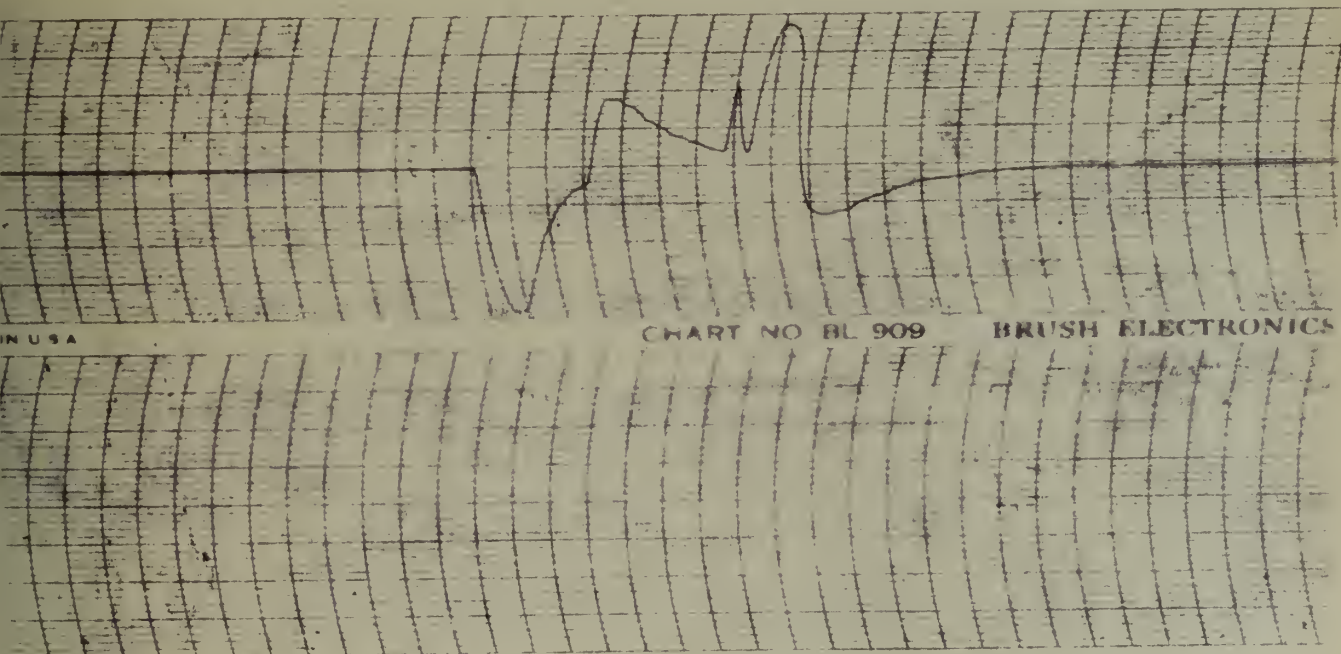 IN U S A CHART NO BL 909 BRUSH ELECTRONICS